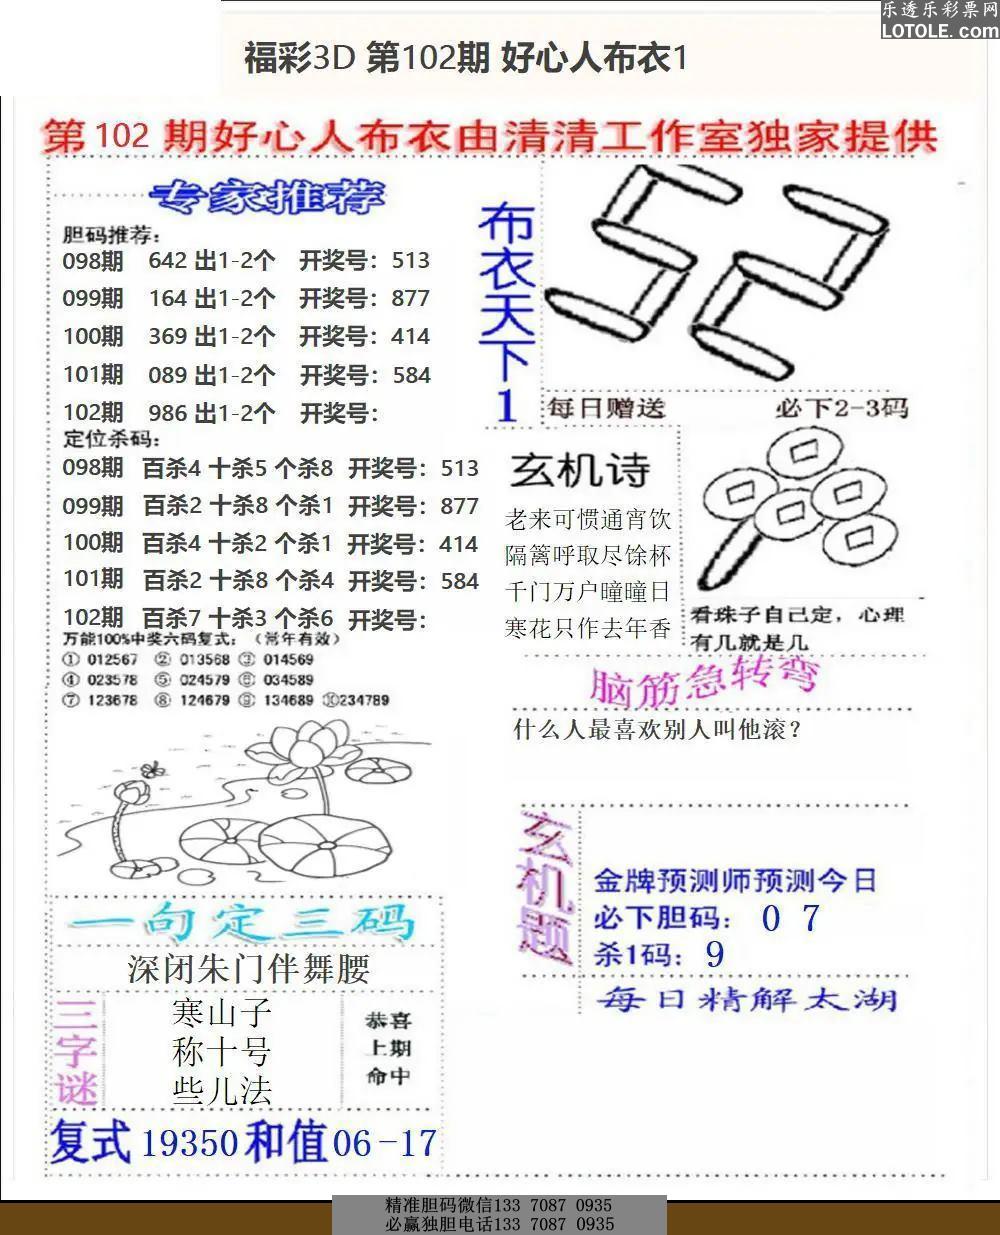 乐透乐彩票网
LOTOLE.com
福彩3D 第102期 好心人布衣1
第 102 期好心人布衣由清清工作室独家提供
专家推荐
胆码推荐：
098期 642 出1-2个 开奖号：513
099期 164 出1-2个 开奖号：877
100期 369 出1-2个 开奖号：414
101期 089 出1-2个 开奖号：584
102期 986 出1-2个 开奖号：
定位杀码：
098期 百杀4 十杀5 个杀8 开奖号：513
099期 百杀2 十杀8 个杀1 开奖号：877
100期 百杀4 十杀2 个杀1 开奖号：414
101期 百杀2 十杀8 个杀4 开奖号：584
102期 百杀7 十杀3 个杀6 开奖号：
万能100%中奖六码复式：（常年有效）
① 012567 ② 013568 ③ 014569
④ 023578 ⑤ 024579 ⑥ 034589
⑦ 123678 ⑧ 124679 ⑨ 134689 ⑩234789
一句定三码
深闭朱门伴舞腰
三字谜
寒山子
称十号
些儿法
恭喜
上期
命中
复式 19350 和值 06-17
布衣天下1
52
每日赠送 必下2-3码
玄机诗
老来可惯通宵饮
隔篱呼取尽馀杯
千门万户曈曈日
寒花只作去年香
看珠子自己定，心理
有几就是几
脑筋急转弯
什么人最喜欢别人叫他滚？
玄机题
金牌预测师预测今日
必下胆码： 0 7
杀1码：9
每日精解太湖
精准胆码微信133 7087 0935
必赢独胆电话133 7087 0935